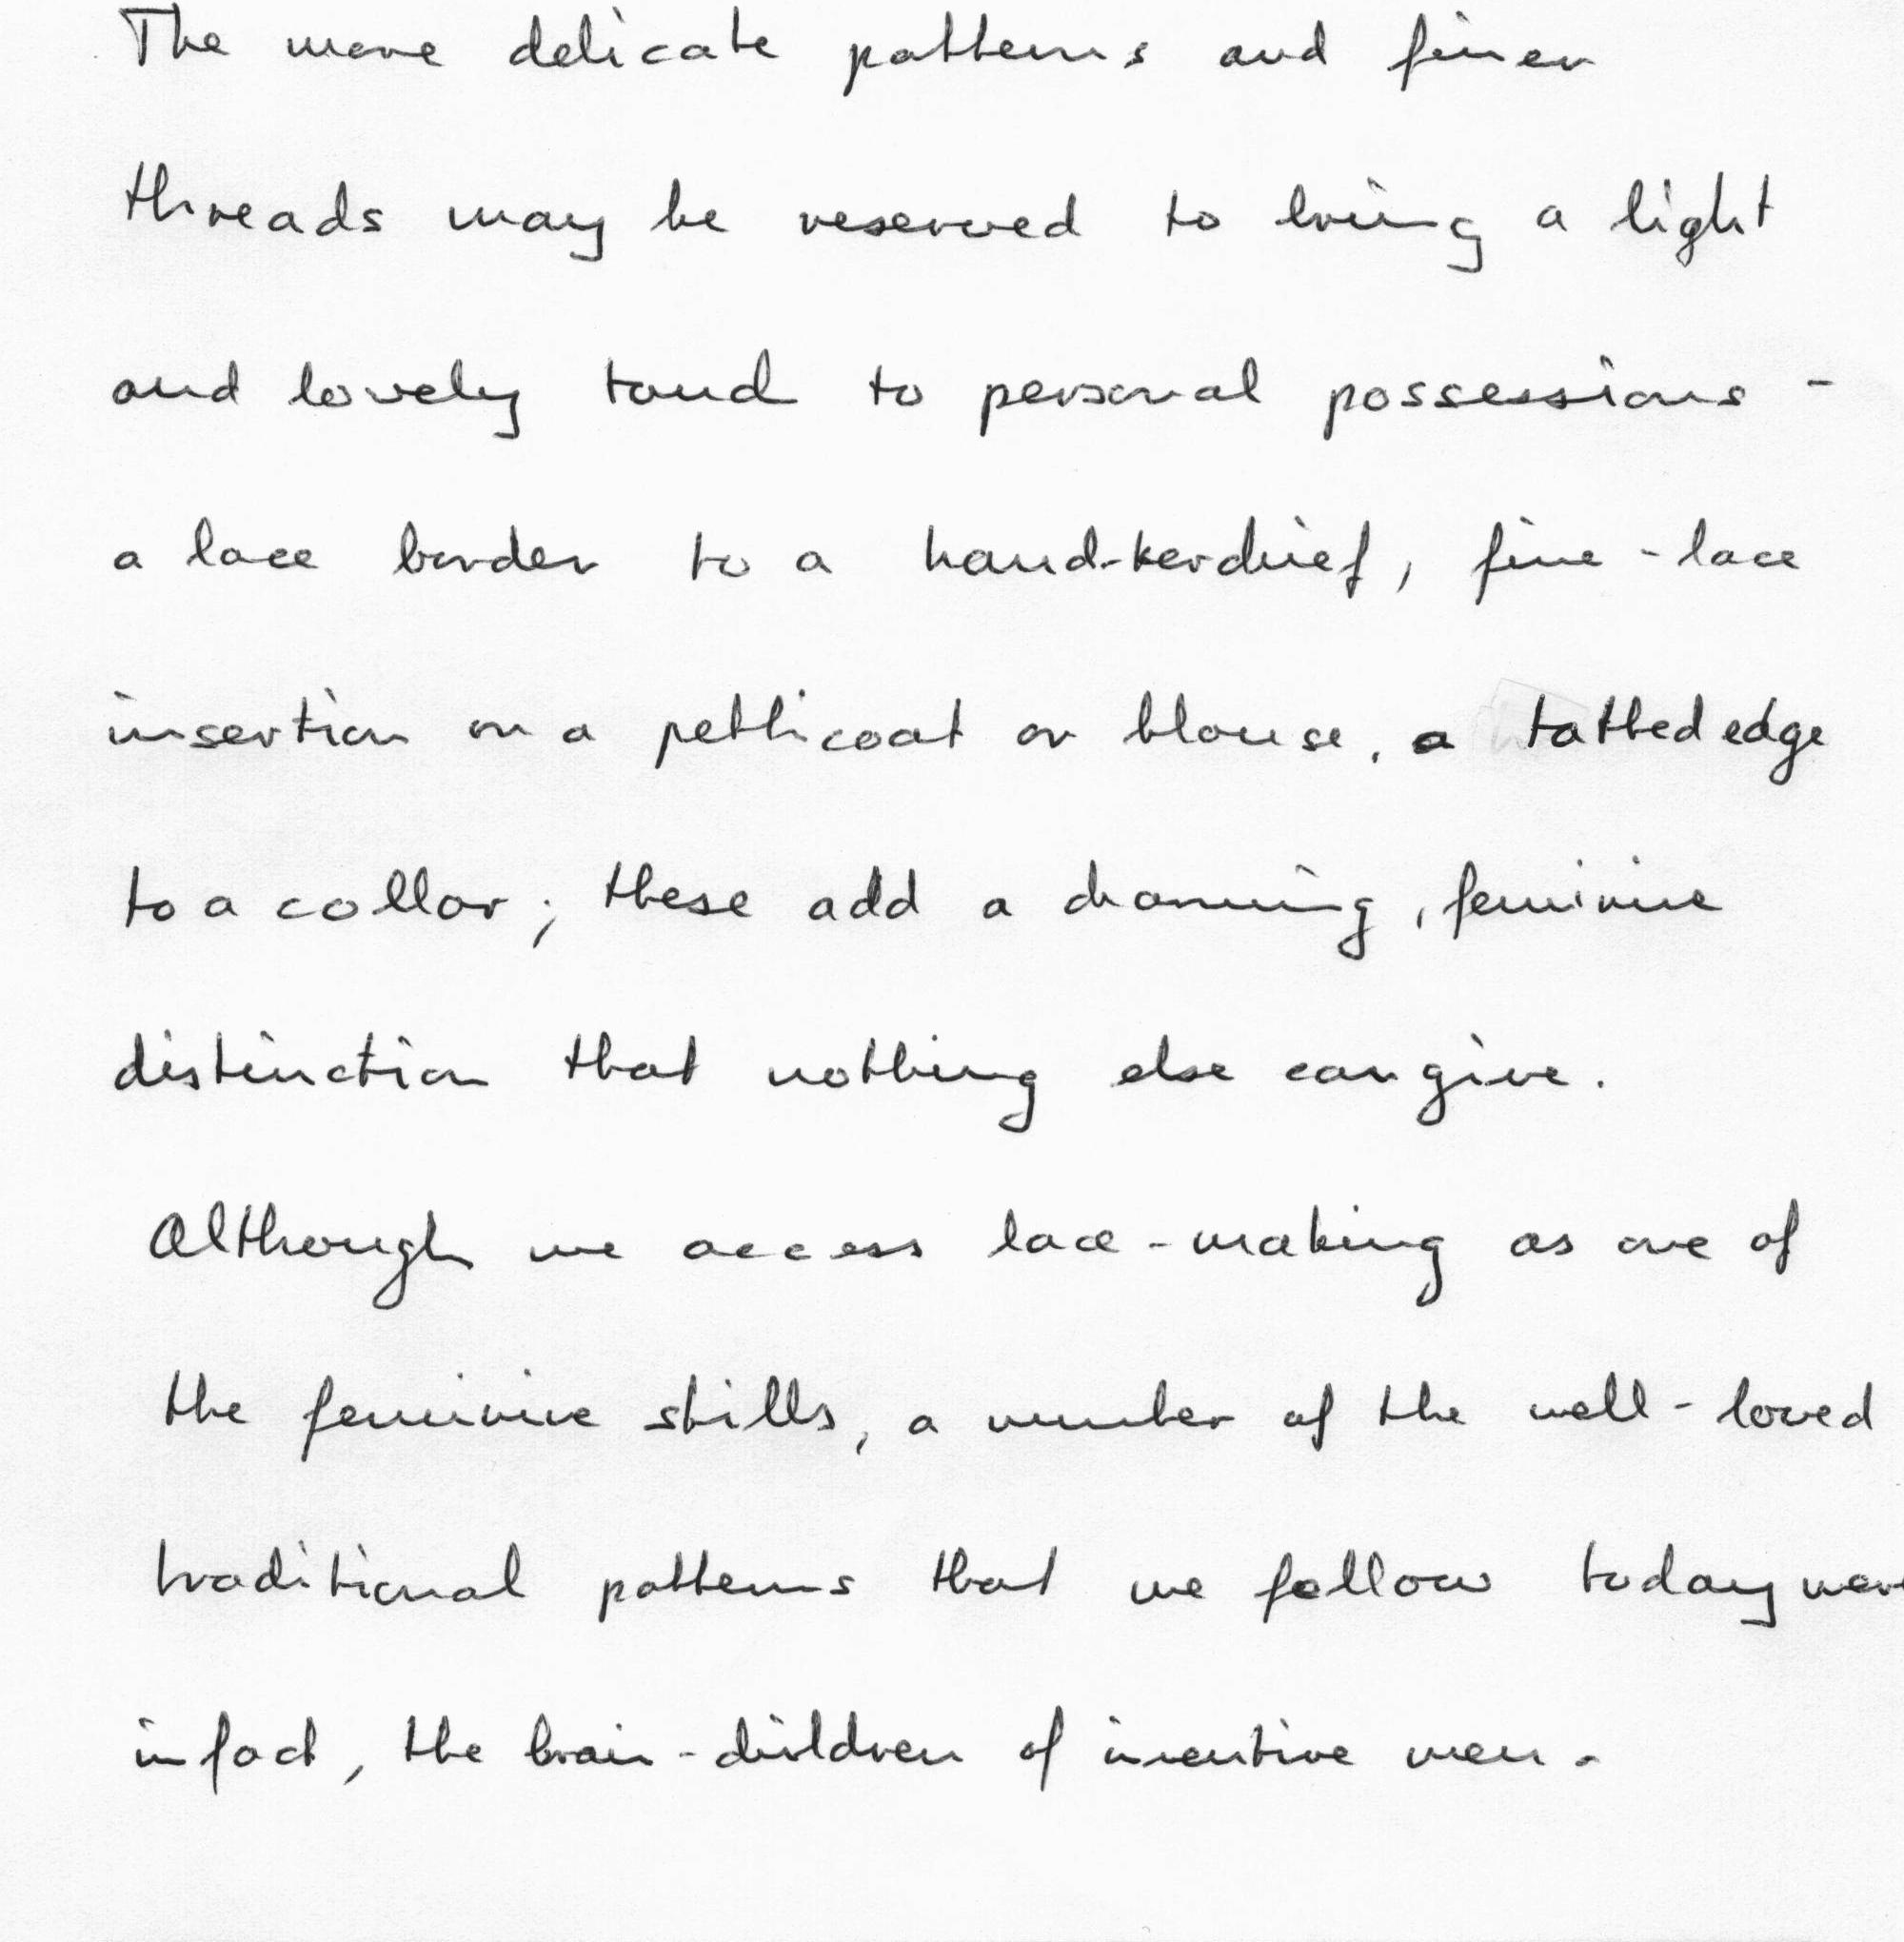 The more delicate patterns and finer
threads may be reserved to bring a light
and lovely toud to personal possessions -
a lace border to a hand-kerchief, fine - lace
insertion on a petticoat or blouse, a tatted edge
to a collar; these add a charming, feminine
distinction that nothing else can give.
Although we access lace-making as one of
the feminine skills, a number of the well-loved
traditional patterns that we follow today were
in fact, the brain-children of inventive men.